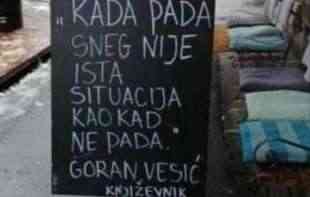 „KADA PADA
SNEG NIJE
ISTA
SITUACIJA
KAO KAD
NE PADA."
GORAN VESIĆ
KNJIŽEVNIK